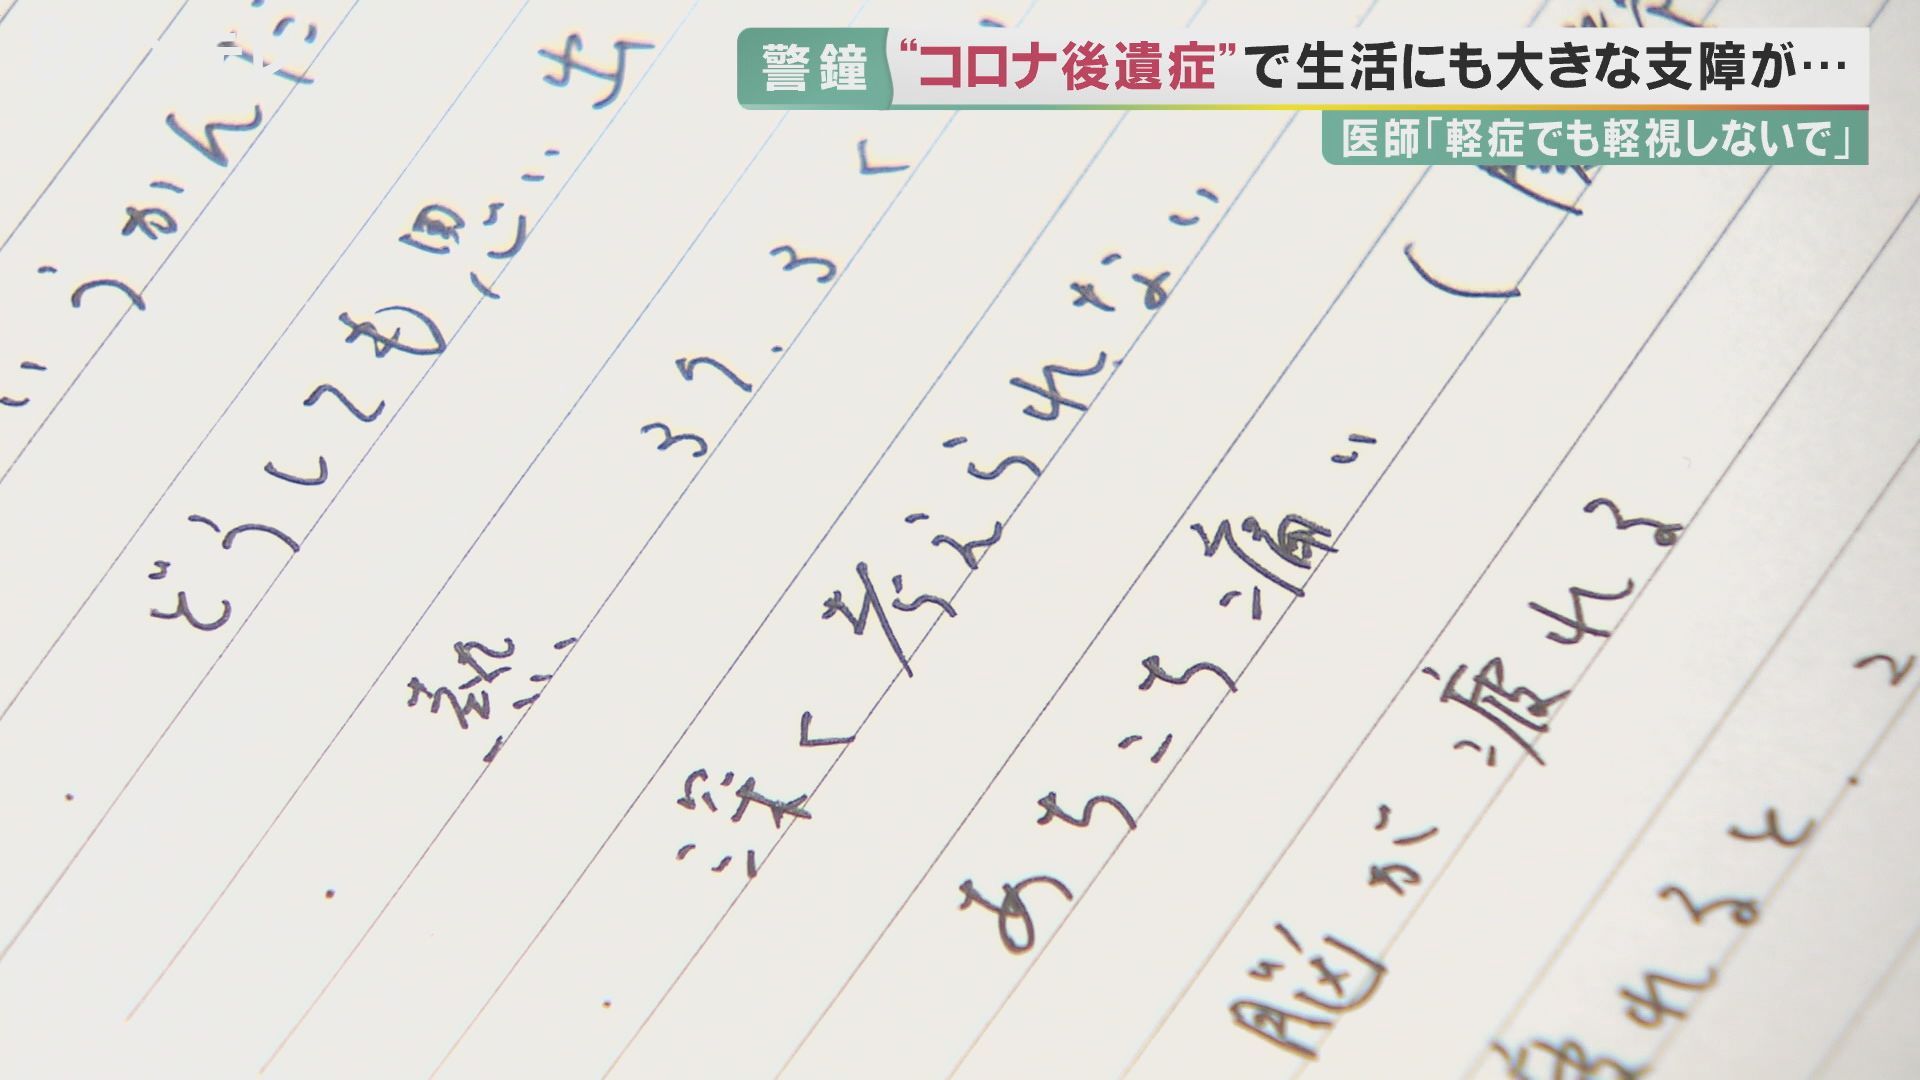 警鐘
“コロナ後遺症”で生活にも大きな支障が…
医師「軽症でも軽視しないで」
どうしても思い出
熱 37.3 く
深く考えられない
あちこち痛い (
脳が疲れる
疲れると.